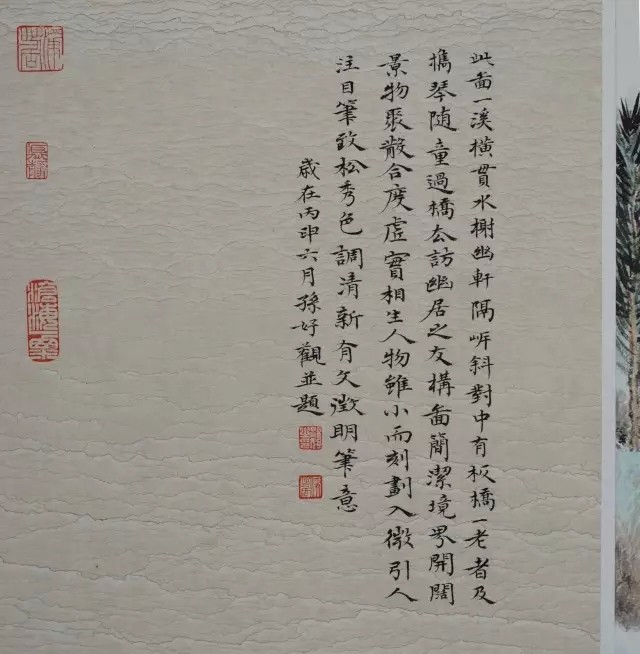 此畵一溪橫貫水榭幽軒隔岸斜對中有板橋一老者及
攜琴隨童過橋去訪幽居之友構畵簡潔境界開闊
景物聚散合度虛實相生人物雖小而刻劃入微引人
注目筆致松秀色調清新有文徵明筆意
歲在丙申六月孫好觀並題